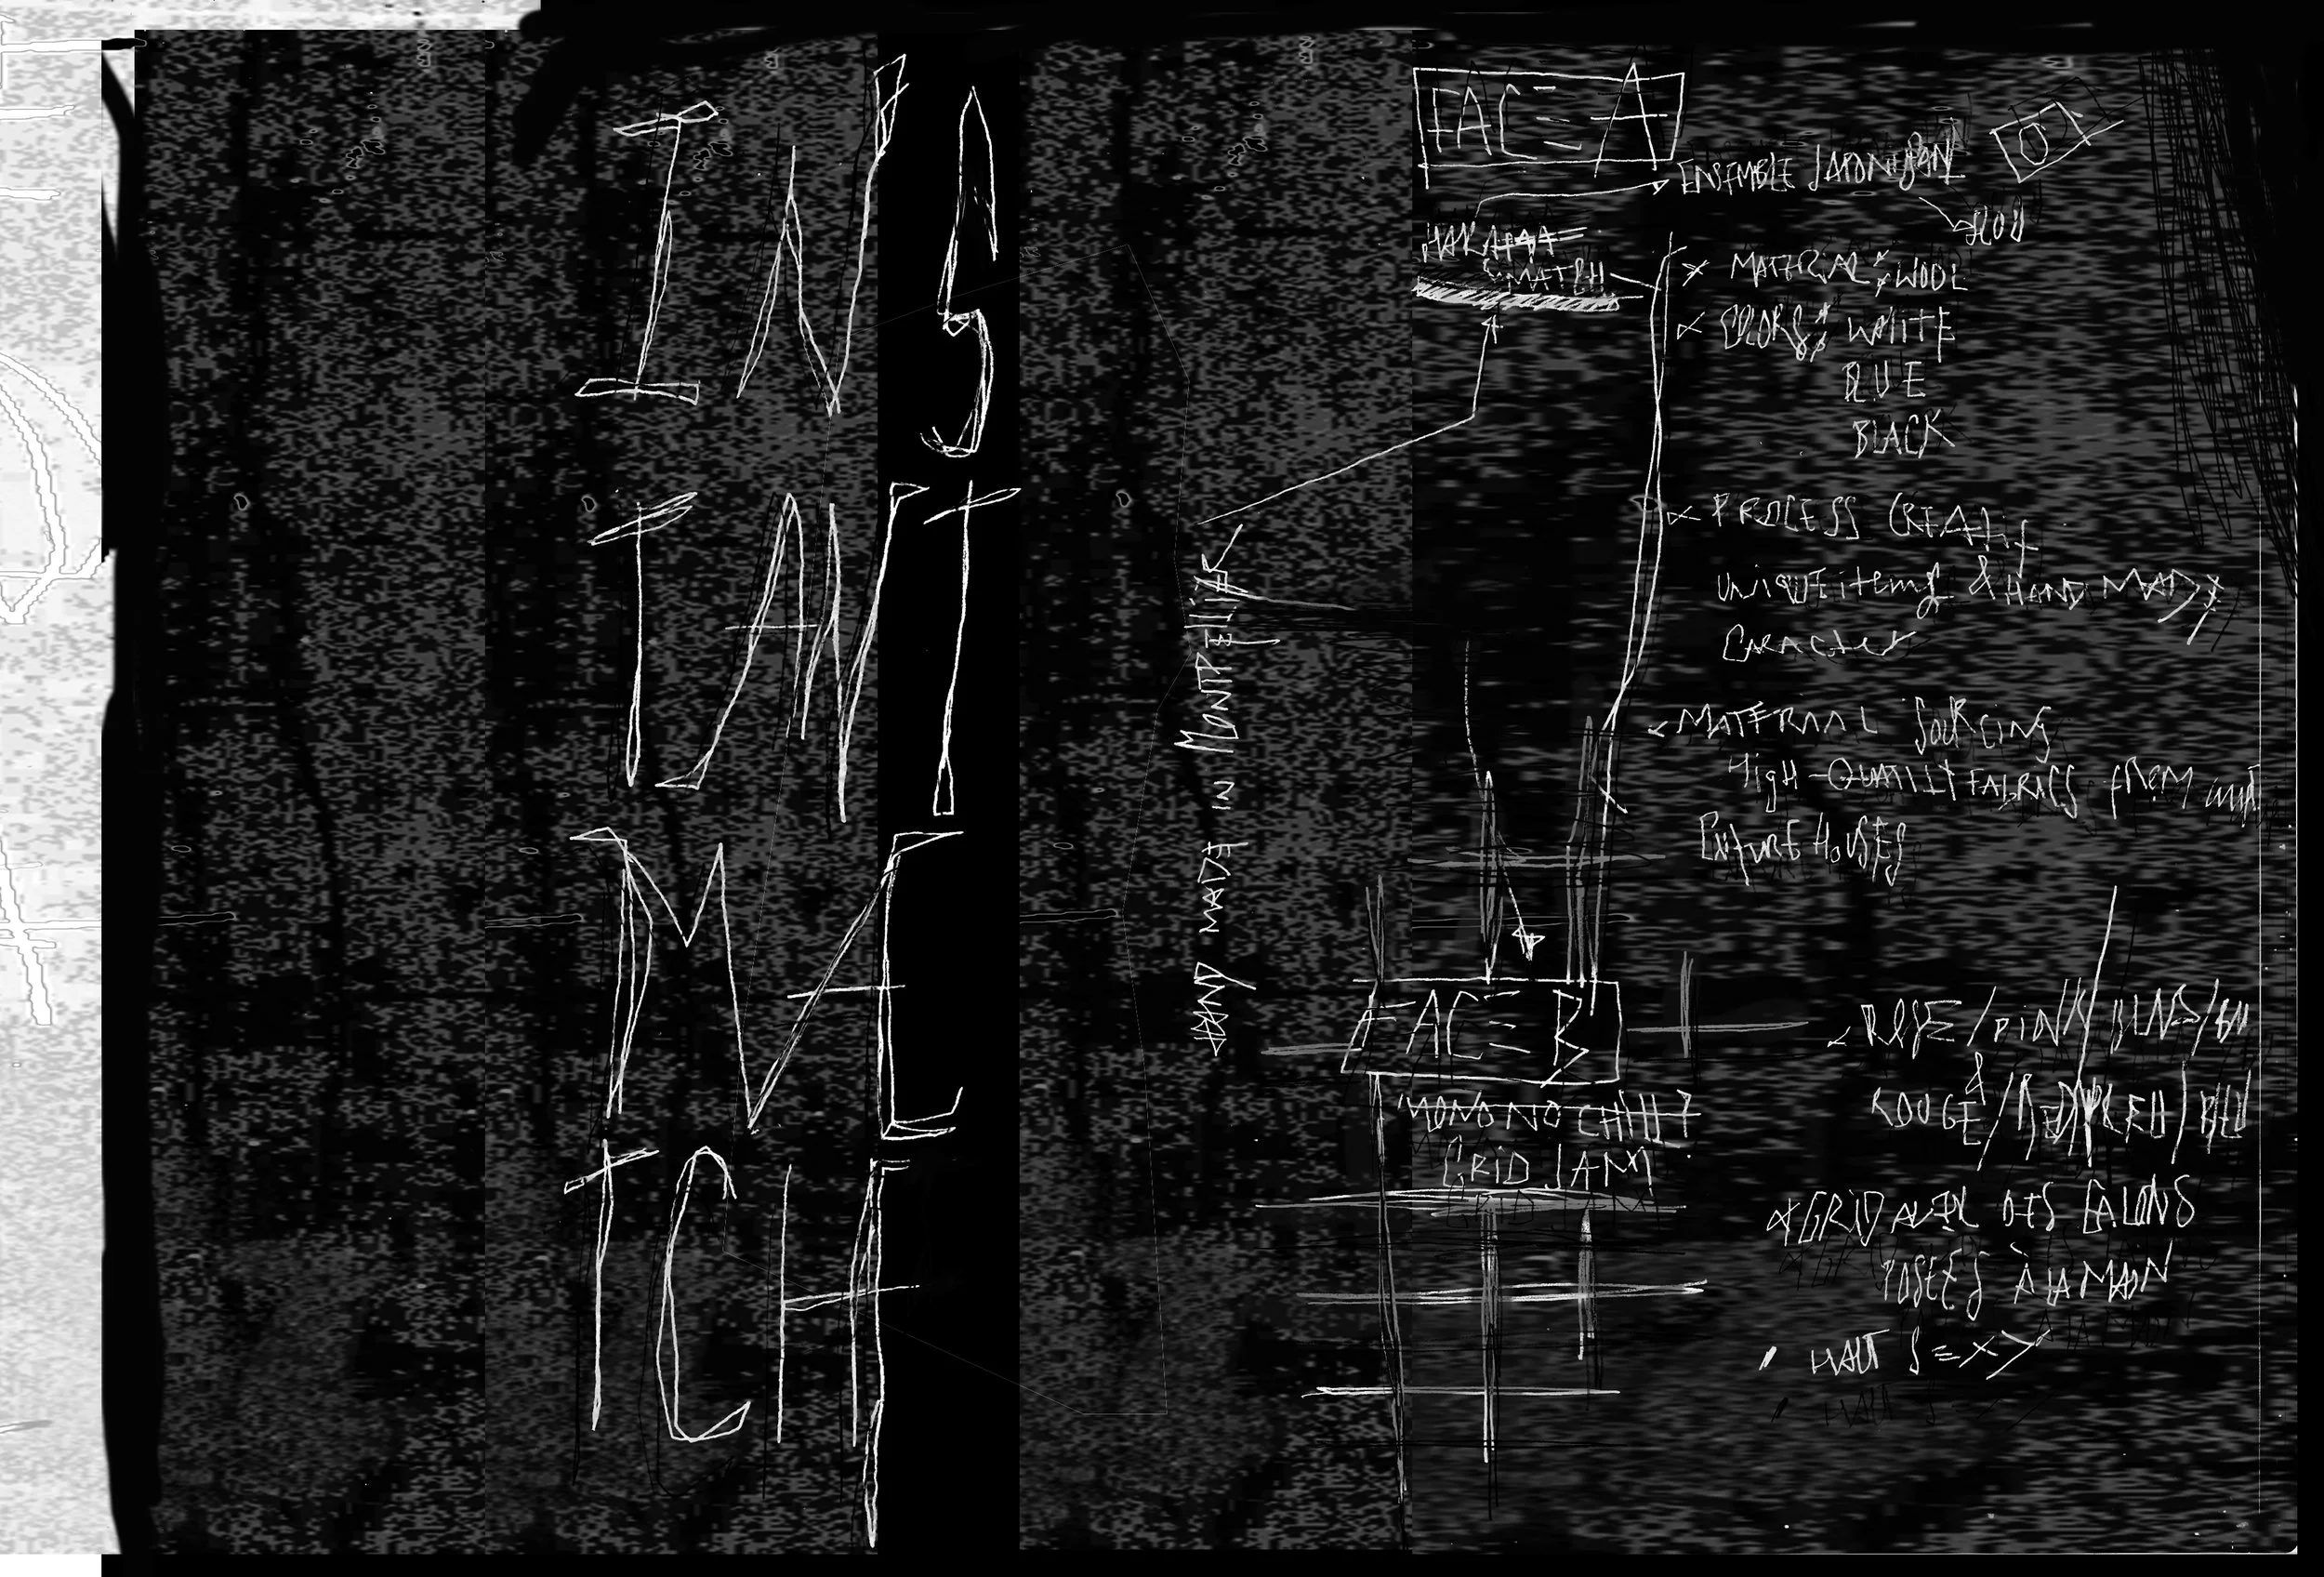 INS
TANT
MA
TCH
HAND MADE IN MONTPELLIER
FACE A
ENSEMBLE
MATCH
MATERIAL: WOOL
COLORS: WHITE
BLUE
BLACK
PROCESS CREATIF
UNIQUE items & HAND MADE
CARACTER
MATERIAL SOURCING
HigH-QUALITY FABRICS FROM
COUTURE HOUSES
FACE B
MONO NO CHILL?
GRID JAM
ROSE/PINK
&
ROUGE/RED
GRID AVEC DES GALONS
POSÉES À LA MAIN